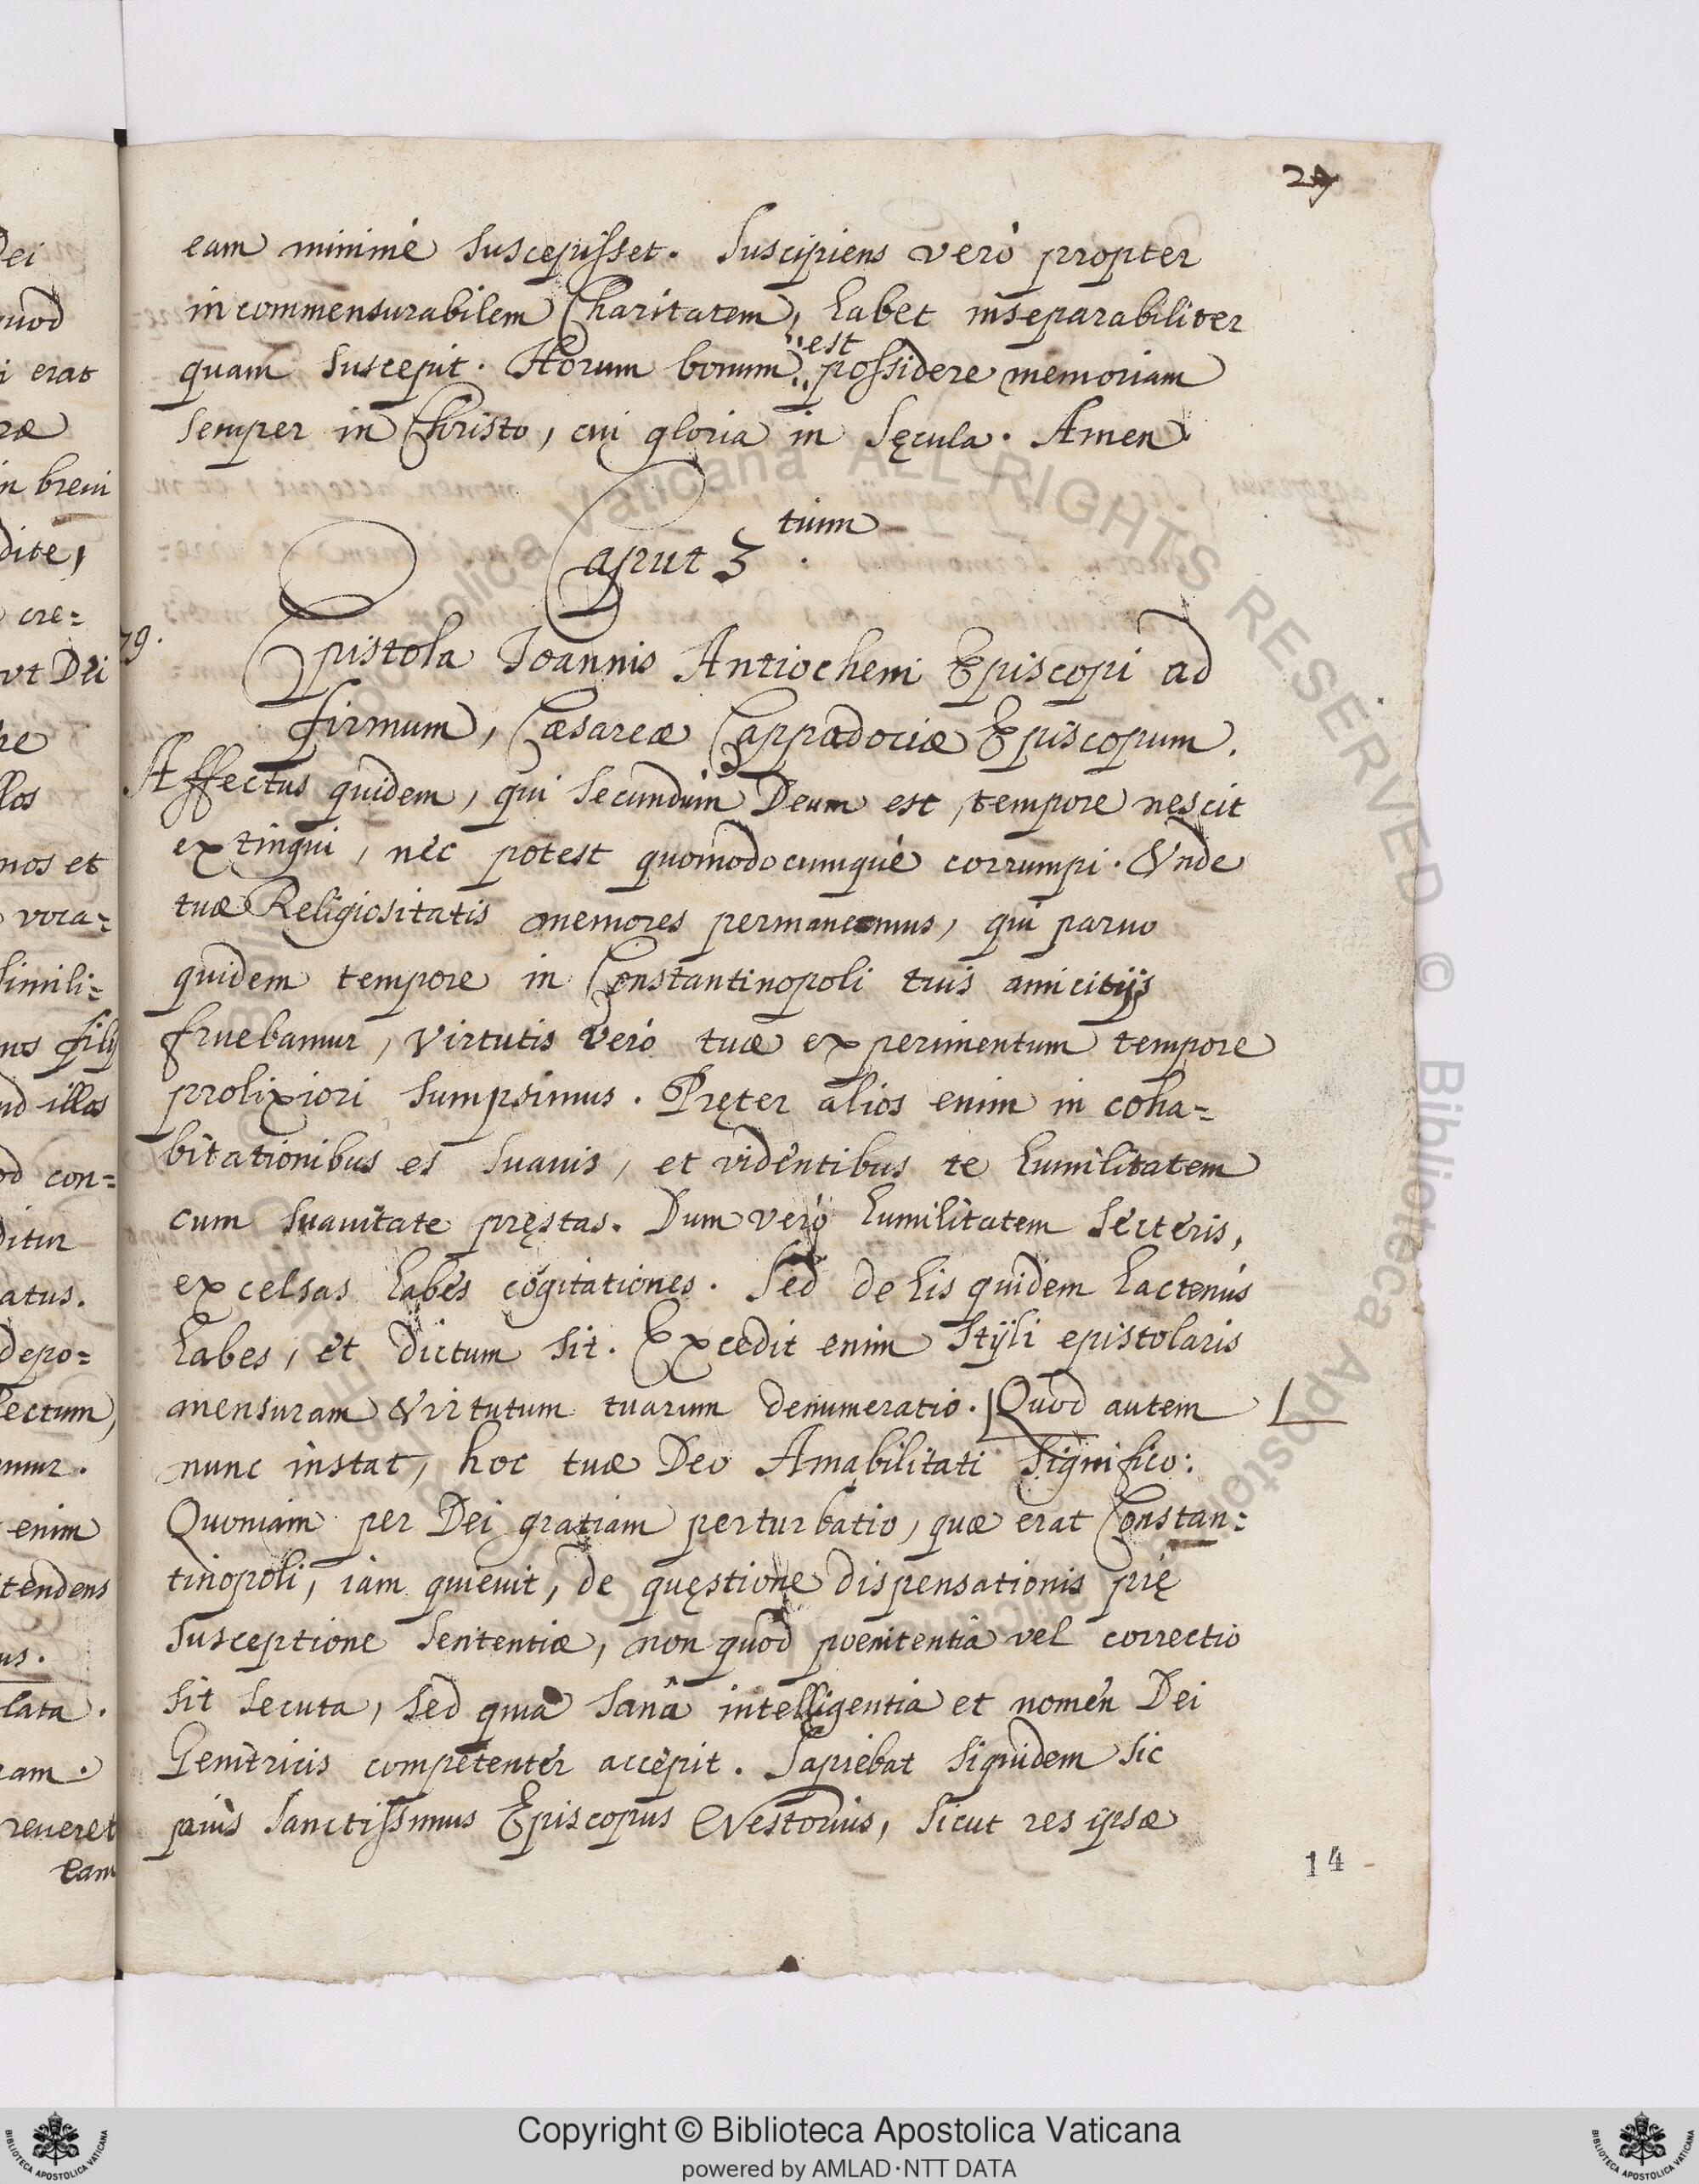 27
eam minimè suscepisset. Suscipiens verò propter
incommensurabilem Charitatem, habet inseparabiliter
est
quam suscepit. Horum bonum possidere memoriam
semper in Christo, cui gloria in sęcula. Amen.
Caput 3 tium.
79.
Epistola Joannis Antiocheni Episcopi ad
firmum, Cæsareæ Cappadociæ Episcopum.
Affectus quidem, qui secundum Deum est, tempore nescit
extingui, nec potest quomodocumque corrumpi. Vnde
tuæ Religiositatis memores permaneamus, qui paruo
quidem tempore in Constantinopoli tuis amicitijs
fruebamur, virtutis verò tuæ experimentum tempore
prolixiori sumpsimus. Pręter alios enim in coha=
bitationibus es suauis, et videntibus te humilitatem
cum suauitate pręstas. Dum verò humilitatem secteris,
excelsas habes cogitationes. Sed de his quidem hactenus
habes, et dictum sit. Excedit enim styli epistolaris
mensuram virtutum tuarum denumeratio. Quod autem
nunc instat, hoc tuæ Deo Amabilitati significo:
Quoniam per Dei gratiam perturbatio, quæ erat Constan=
tinopoli, iam quieuit, de quęstione dispensationis pię
susceptione sententiæ, non quod poenitentia vel correctio
sit secuta, sed quia sanâ intelligentia et nomen Dei
Genitricis competenter accepit. Sapiebat siquidem sic
prius sanctissimus Episcopus Nestorius, sicut res ipsæ
14
Dei
quod
i erat
ræ
in breui
dite,
cre=
vt Dei
re
llos
nos et
voca=
simili=
nos filij
ud illos
od con=
ditur
atus.
depo=
ectum,
mur.
enim
tendens
us.
lata.
ram.
reueret
eam
Copyright © Biblioteca Apostolica Vaticana
powered by AMLAD·NTT DATA